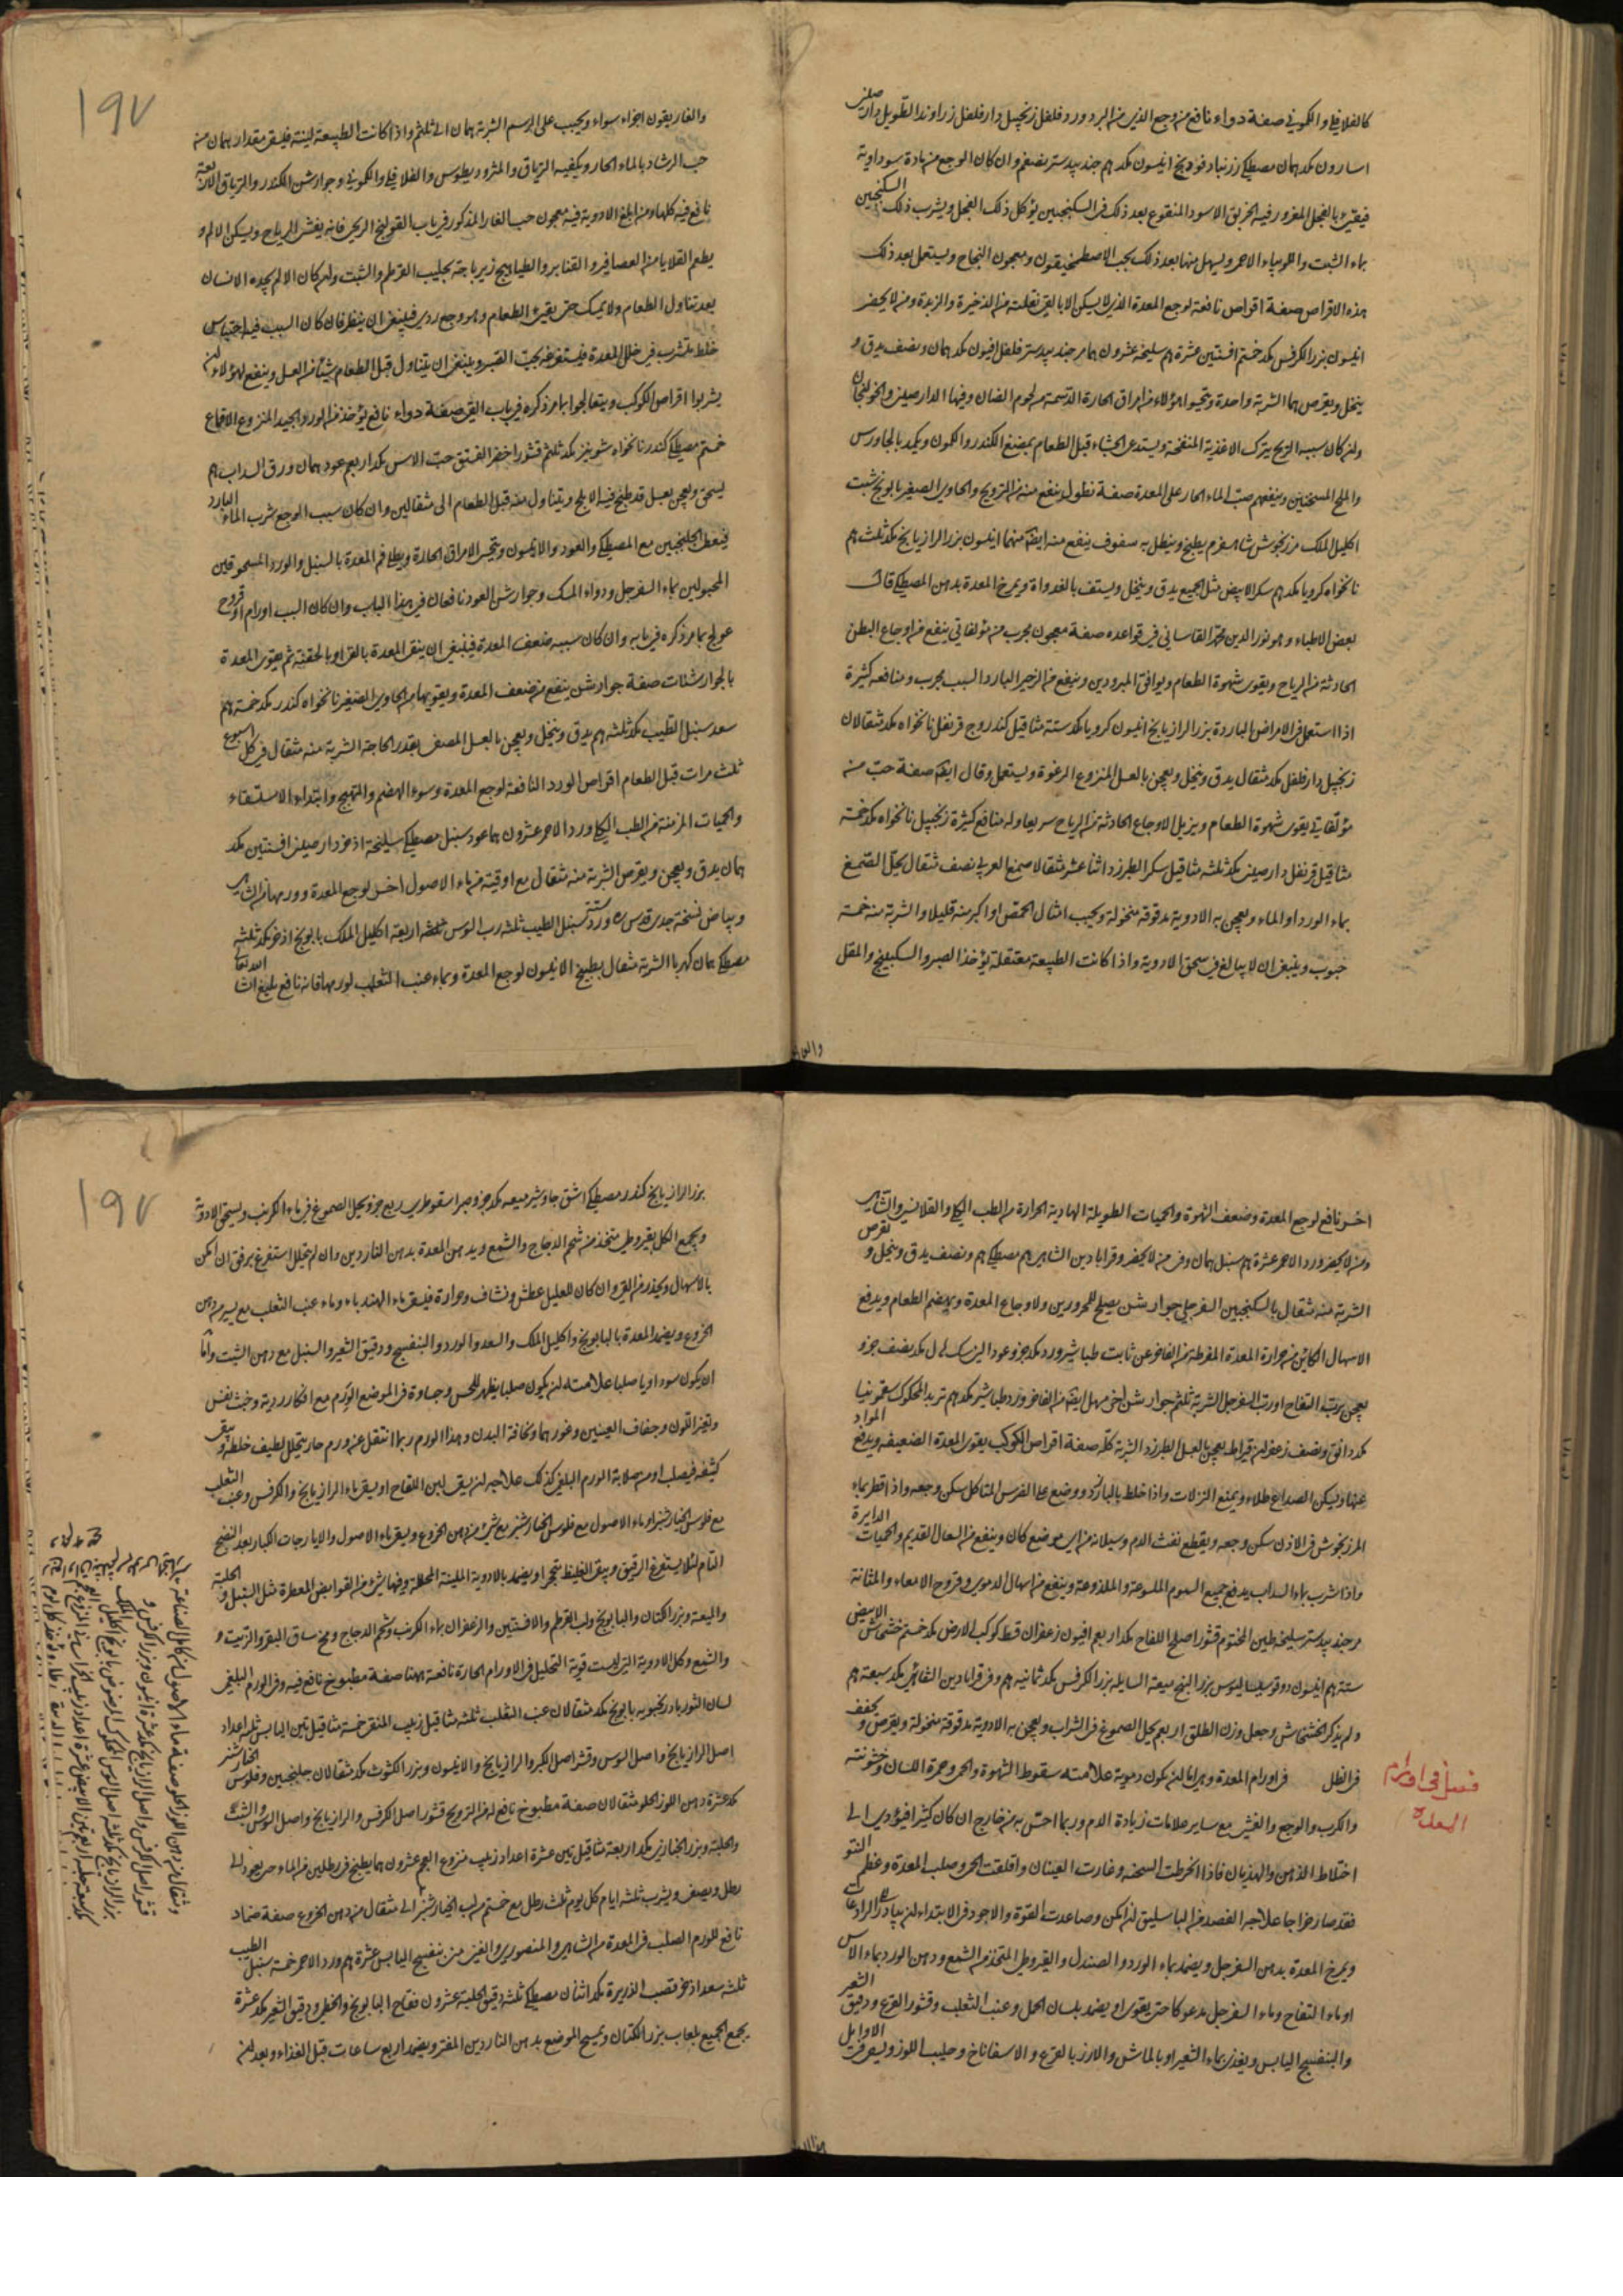 كالفلافلي والكموني صفة دواء نافع من وجع الذي من البرد ورد فلفل زنجبيل دارفلفل زراوند الطويل دارصيني
اسارون مكد همان مصطكي زرنباد فودنج انيسون مكد هم جندبيدستر نصفم وان كان الوجع من مادة سوداوية
فيقيئ بالفجل المغرور فيه الخربق الاسود المنقوع بعد ذلك في السكنجبين يؤكل ذلك الفجل ويشرب ذلك السكنجبين
بماء الشبت واللوبياء الاحمر ويسهل منها بعد ذلك بحب الاصطمخيقون ومعجون النجاح ويستعمل بعد ذلك
هذه الاقراص صفة اقراص نافعة لوجع المعدة الذي لا يسكن الا بالقي نقلت من الذخيرة والزبدة ومن لا يحضر
انيسون بزر الكرفس مكد خستم افسنتين عشرة هم سليخة عشرون هما مر جندبيدستر فلفل افيون مكد همان ونصف يدق و
ينخل ويقرص هما الشربة واحدة ويتحسوا هؤلاء من امراق الحارة الدسمة من لحوم الضان وفيها الدارصيني والخولنجان
ولئن كان سببه الريح يترك الاغذية المنفخة ويستدعى الجشاء قبل الطعام بمضغ الكندر والكمون ويكمد بالجاورس
والملح المسخنين وينفعهم صب الماء الحار على المعدة صفة نطول ينفع منه من الترويح والحاوي الصغير بابونج شبت
اكليل الملك مرزنجوش شاهسفرم يطبخ وينطل به سفوف ينفع منه ايضا منهما انيسون بزر الرازيانج مكد ثلث هم
نانخواه كرويا مكد هم سكر الابيض مثل الجميع يدق وينخل ويستف بالغداة ويمرخ المعدة بدهن المصطكي قال
بعض الاطباء وهو نور الدين محمد القاساني في قواعده صفة معجون مجرب من مؤلفاتي ينفع من اوجاع البطن
الحادثة من الرياح ويقوي شهوة الطعام ويوافق المبرودين وينفع من الزحير البارد السبب مجرب ومنافعه كثيرة
اذا استعمل في الامراض الباردة بزر الرازيانج انيسون كرويا مكد ستة مثاقيل كندر وج قرنفل نانخواه مكد مثقالان
زنجبيل دارفلفل مكد مثقال يدق وينخل ويعجن بالعسل المنزوع الرغوة ويستعمل وقال ايضا صفة حب من
مؤلفاتي يقوي شهوة الطعام ويزيل الاوجاع الحادثة من الرياح سريعا وله منافع كثيرة زنجبيل نانخواه مكد خمسة
مثاقيل قرنفل دارصيني مكد ثلثه مثاقيل سكر الطبرزد اثنا عشر مثقالا صمغ العربي نصف مثقال يحل الصمغ
بماء الورد او الماء ويعجن به الادوية مدقوقة منخولة ويحبب امثال الحمص او اكبر منه قليلا والشربة منه خمسة
حبوب وينبغي ان لا يبالغ في سحق الادوية واذا كانت الطبيعة معتقلة يؤخذ الصبر والسكبينج والمقل
١٩٧
والغاريقون اجزاء سواء ويحبب على الرسم الشربة همان الى ثلثم واذا كانت الطبيعة لينة فليسق مقدار همان منه
حب الرشاد بالماء الحار ويكفيه الترياق والمثروديطوس والفلافلي والكموني وجوارشن الكندر والترياق الاربعة
نافع فيه كلها ومن ابلغ الادوية فيه معجون حب الغار المذكور في باب القولنج الريحي فانه يفش الرياح ويسكن الالم و
يطعم القلايا من العصافير والقنابر والطياهيج زيرباجة بحليب القرطم والشبت ولئن كان الالم يجده الانسان
بعد تناول الطعام ولا يمسك حتى يقيئ الطعام وهو وجع ردي فينبغي ان ينظر فان كان السبب فيه احتباس
خلط متشرب في خلل المعدة فيستفرغه بحب الصبر وينبغي ان يتناول قبل الطعام شيئا من العسل وينفع لهؤلاء لئن
يشربوا اقراص الكوكب ويتعالجوا بما مر ذكره في باب القي صفة دواء نافع يؤخذ من الورد الجيد المنزوع الاقماع
خستم مصطكي كندر نانخواه شونيز مكد ثلثم قشور اخضر الفستق حب الاس مكد اربعم عود همان ورق السداب هم
يسحق ويعجن بعسل قد طبخ فيه الابلج ويتناول منه قبل الطعام الى مثقالين وان كان سبب الوجع شرب الماء البارد
فيعطى الجلنجبين مع المصطكي والعود والانيسون ويتجرع الامراق الحارة ويطلي فم المعدة بالسنبل والورد المسحوقين
المجبولين بماء السفرجل ودواء المسك وجوارشن العود نافعان في هذا الباب وان كان السبب اورام او قروح
عولج بما مر ذكره في بابه وان كان سببه ضعف المعدة فينبغي ان ينقى المعدة بالقي او بالحقنة ثم يقوى المعدة
بالجوارشنات صفة جوارشن ينفع من ضعف المعدة ويقويها من الحاوي الصغير نانخواه كندر مكد خمسة هم
سعد سنبل الطيب مكد ثلثه هم يدق وينخل ويعجن بالعسل المصفى بقدر الحاجة الشربة منه مثقال في كل اسبوع
ثلث مرات قبل الطعام اقراص الورد النافعة لوجع المعدة وسوء الهضم والتهيج وابتداء الاستسقاء
والحميات المزمنة من الطب الپكا ورد الاحمر عشرون هما عود سنبل مصطكي سليخة اذخر دارصيني افسنتين مكد
همان يدق ويعجن ويقرص الشربة منه مثقال مع اوقية من ماء الاصول اخر لوجع المعدة وورمها من الشاهي
وبياض نسخة جدي قدس ره ورد ستة سنبل الطيب ثلثه رب السوس اربعة اكليل الملك بابونج اذخر مكد ثلثه
مصطكي همان كهربا الشربة مثقال بطبيخ الانيسون لوجع المعدة وبماء عنب الثعلب لورمها فانه نافع بليغ انشا الله تعالى
اخر نافع لوجع المعدة وضعف الشهوة والحميات الطويلة الهادية الحرارة من الطب الپكا والقلانسي والشاهي
ومن لا يحضر ورد الاحمر عشرة هم سنبل همان وفي من لا يحضر وقرابادين الشاهي هم مصطكي هم ونصف يدق وينخل و يقرص
الشربة منه مثقال بالسكنجبين السفرجلي جوارشن يصلح للمحرورين ولاوجاع المعدة ويهضم الطعام ويدفع
الاسهال الكائن من حرارة المعدة المفرطة من الفاخر عن ثابت طباشير ورد مكد جزو عود الني سك مكد نصف جزو
يعجن برب التفاح او رب السفرجل الشربة ثلثم جوارشن اخر مسهل ايضا من الفاخر ورد طباشير مكد هم تربد المحكوك سقمونيا
مكد دانق ونصف زعفران قيراط يعجن بالعسل الطبرزد الشربة كله صفة اقراص الكوكب يقوي المعدة الضعيفة ويدفع المواد
عنها ويسكن الصداع طلاء ويمنع النزلات واذا خلط بالبارزد ووضع على الضرس المتاكل سكن وجعه واذا قطر بماء
المرزنجوش في الاذن سكن وجعه ويقطع نفث الدم وسيلانه من اي موضع كان وينفع من السعال القديم والحميات الدايرة
واذا شرب بماء السداب يدفع جميع السموم الملسوعة والملدوغة وينفع من اسهال الدموي وقروح الامعاء والمثانة
مر جندبيدستر سليخة طين المختوم قشور اصل اللفاح مكد اربعم افيون زعفران قسط كوكب الارض مكد خستم خشخاش الابيض
ستة هم انيسون دوقو سيساليوس بزر البنج ميعة السايلة بزر الكرفس مكد ثمانية هم وفي قرابادين القانون مكد سبعة هم
ولم يذكر الخشخاش وجعل وزن الطلق اربعم يحل الصموغ في الشراب ويعجن به الادوية مدقوقة منخولة ويقرص و يجفف
في الظل
فصل فى اورام المعده
في اورام المعدة وهي اما لئن يكون دموية علامته سقوط الشهوة والحمى وحمرة اللسان وخشونته
والكرب والوجع والغشي مع ساير علامات زيادة الدم وربما احس به من خارج ان كان كثيرا فيؤدي الى
اختلاط الذهن والهذيان فاذا انخرطت السحنة وغارت العينان واقلعت الحمى وصلب المعدة وعظم النتو
فقد صار خراجا علاجه الفصد من الباسليق لئن امكن وساعدت القوة والاجود في الابتداء لئن يبادر الى الرادعات
ويمرخ المعدة بدهن السفرجل ويضمد بماء الورد والصندل والقيروطي المتخذ من الشمع ودهن الورد بماء الاس
او ماء التفاح وماء السفرجل مدعوكا حتى يقوى او يضمد بلسان الحمل وعنب الثعلب وقشور القرع ودقيق الشعير
والبنفسج اليابس ويغذى بماء الشعير او بالماش والارز بالقرع والاسفاناخ وحليب اللوز وليصرف الاوايل
١٩٧
بزر الرازيانج كندر مصطكي اشق جاوشير ميعه مكد جزو صبر اسقوطري ربع جزو يحل الصموغ في ماء الكرنب ويسحق الادوية
ويجمع الكل بقيروطي متخذ من شحم الدجاج والشمع ويدهن المعدة بدهن الناردين وان لم يتحلل استفرغ برفق ان امكن
بالاسهال ويحذر من القي وان كان للعليل عطش ونشاف وحرارة فليسق ماء الهندباء وماء عنب الثعلب مع يسير من دهن
الخروع ويضمد المعدة بالبابونج واكليل الملك والسعد والورد والبنفسج ودقيق الشعير والسنبل مع دهن الشبت واما
ان يكون سوداويا صلبا علامته لئن يكون صلبا يظهر للحس وجساوة في الموضع الورم مع افكار ردية وخبث نفس
وتغير اللون وجفاف العينين وغورهما ونحافة البدن وهذا الورم ربما انتقل عن ورم حار يتحلل لطيف خلطه و يبقى
كثيفه فيصلب او من صلابة الورم البلغمي كذلك علاجه لئن يسقى لبن اللقاح او يسق ماء الرازيانج والكرفس وعنب الثعلب
مع فلوس الخيارشنبر او ماء الاصول مع فلوس الخيارشنبر مع شيئ من دهن الخروع ويسق ماء الاصول والايارجات الكبار بعد النضج
التام لئلا يستفرغ الرقيق ويبقى الغليظ يتحجر او يضمد بالادوية الملينة المحللة وفيها شيئ من القوابض المعطرة مثل السنبل و الحلبة
والميعة وبزر الكتان والبابونج ولب القرطم والافسنتين والزعفران بماء الكرنب وشحم الدجاج ومخ ساق البقر والزيت و
والشمع وكل الادوية التي ليست قوية التحليل في الاورام الحارة نافعة ههنا صفة مطبوخ نافع فيه وفي الورم البلغمي
لسان الثور بادرنجبويه بابونج مكد مثقالان عنب الثعلب ثلثه مثاقيل زبيب المنقى خمسة مثاقيل تين اليابس ثلثه اعداد
اصل الرازيانج واصل السوس وقشر اصل الكبر والرازيانج والانيسون وبزر الكشوث مكد مثقالان جلنجبين وفلوس الخيارشنبر
مكد عشرة دهن اللوز الحلو مثقالان صفة مطبوخ نافع له من الترويح قشور اصل الكرفس والرازيانج واصل السوس والشبت
والحلبة وبزر الخبازي مكد اربعة مثاقيل تين عشرة اعداد زبيب منزوع العجم عشرون هما يطبخ في رطلين من الماء حتى يعود الى
رطل ويصفى ويشرب ثلثه ايام كل يوم ثلث رطل مع خستم من لب الخيارشنبر الى مثقال من دهن الخروع صفة ضماد
نافع للورم الصلب في المعدة من الشاهي والمنصوري والغنى منى بنفسج اليابس عشرة هم ورد الاحمر خمسة سنبل الطيب
ثلثه سعد اذخر قصب الذريرة مكد اثنان مصطكي ثلثه دقيق الحلبة عشرون فقاح البابونج والخطمي ودقيق الشعير مكد عشرة
يجمع الجميع بلعاب بزر الكتان ويمسح الموضع بدهن الناردين المفتر ويضمد اربع ساعات قبل الغذاء وبعد لئن
ومثقال من دهن اللوز الحلو صفة ماء الاصول من كامل الصناعة
قشور اصل الكرفس واصل الرازيانج مكد عشرة انيسون وبزر الكرفس و
بزر الرازيانج مكد ثلثه اصل السوس المحكوك المرضوض بابونج اكليل الملك